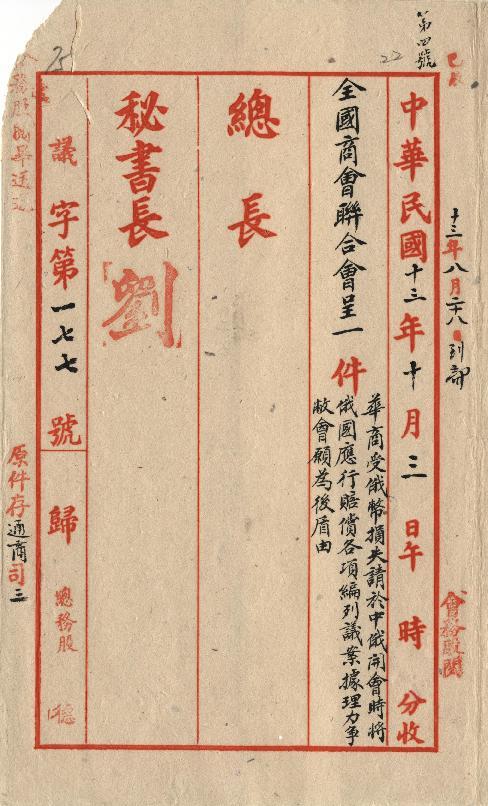 第四號
十三年八月廿八日到部
中華民國十三年十月三日午 時 分收
會務股閱
全國商會聯合會呈一件
華商受俄幣損失請於中俄開會時將
俄國應行賠償各項編列議案據理力爭
敝會願為後盾由
總長
秘書長 劉
議字第一七七號 歸 總務股
原件存通商司三
22